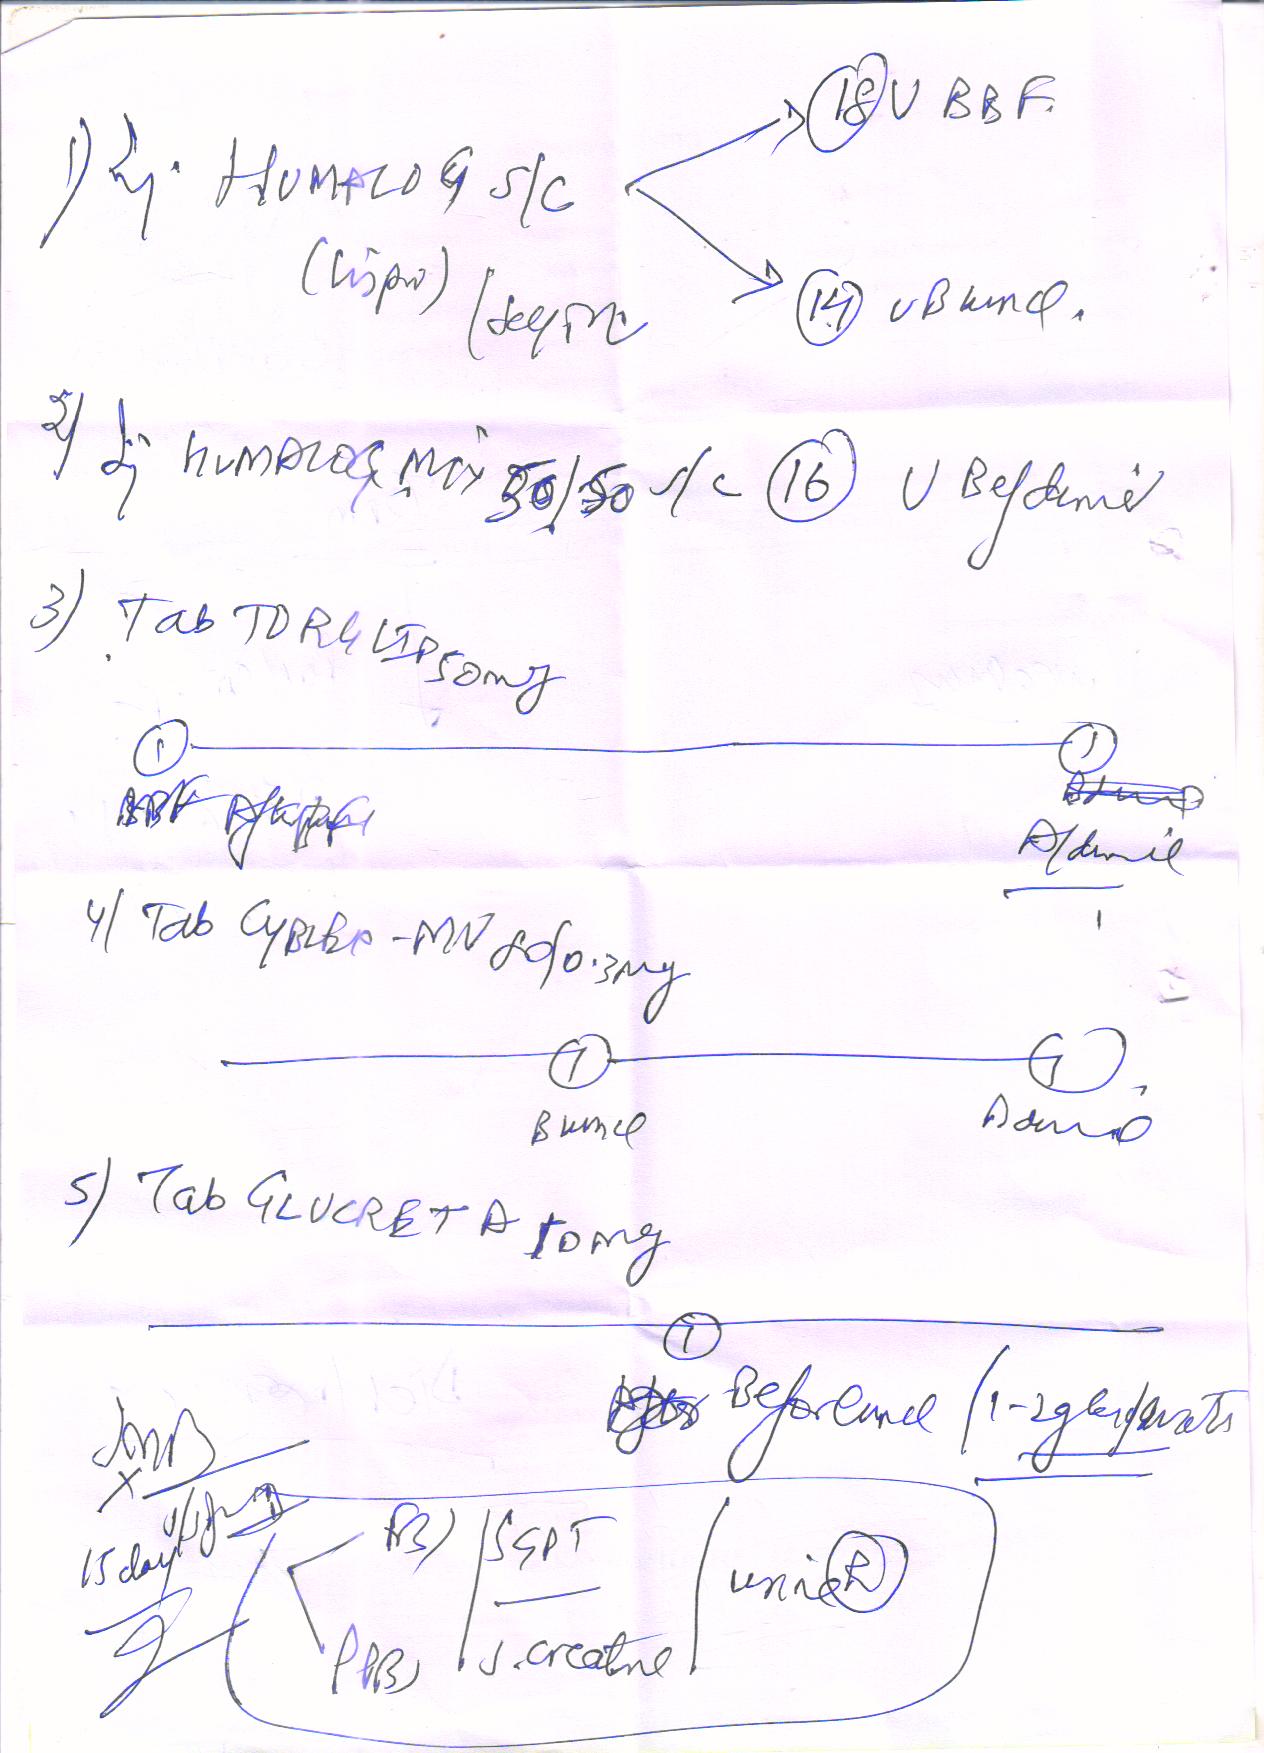 1) Inj. HUMALOG S/C
18 U BBF.
(Lispro)
14 U B lunch.
2) Inj HUMALOG MIX 50/50 S/C 16 U Bef dinner
3) Tab TORGLIP 50mg
1 1
BBF A/ B dinner
A/dinner
4) Tab CYBLEX-MV 80/0.3mg
1 1
B lunch A dinner
5) Tab GLUCRETA 10mg
1
Before lunch / 1-2 glass/water
15 day
FBS / SGPT / urine R
PPBS S. creatine